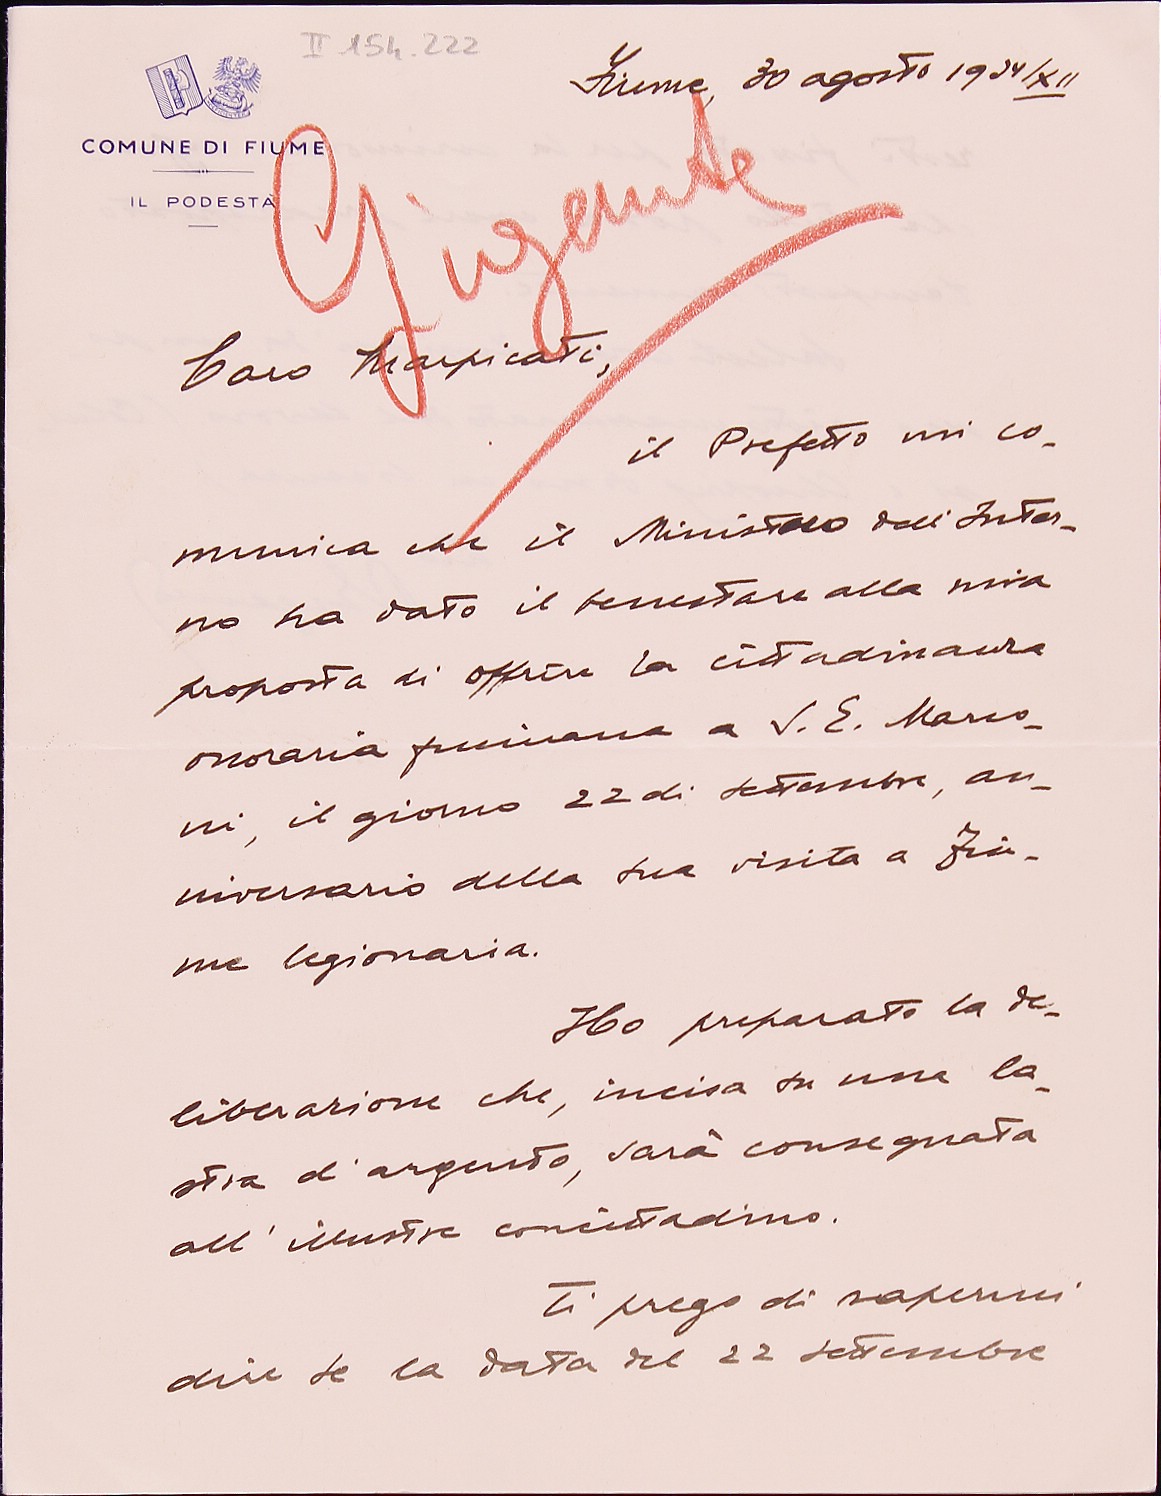 II 154.222
Fiume, 30 agosto 1934/XII
COMUNE DI FIUME
IL PODESTÀ
Gigante
Caro Marpicati,
il Prefetto mi co-
munica che il Ministero dell'Inter-
no ha dato il benestare alla mia
proposta di offrire la cittadinanza
onoraria fiumana a S. E. Marco-
ni, il giorno 22 di settembre, an-
niversario della sua visita a Fiu-
me legionaria.
Ho preparato la de-
liberazione che, incisa su una la-
stra d'argento, sarà consegnata
all'illustre concittadino.
Ti prego di sapermi
dire se la data del 22 settembre